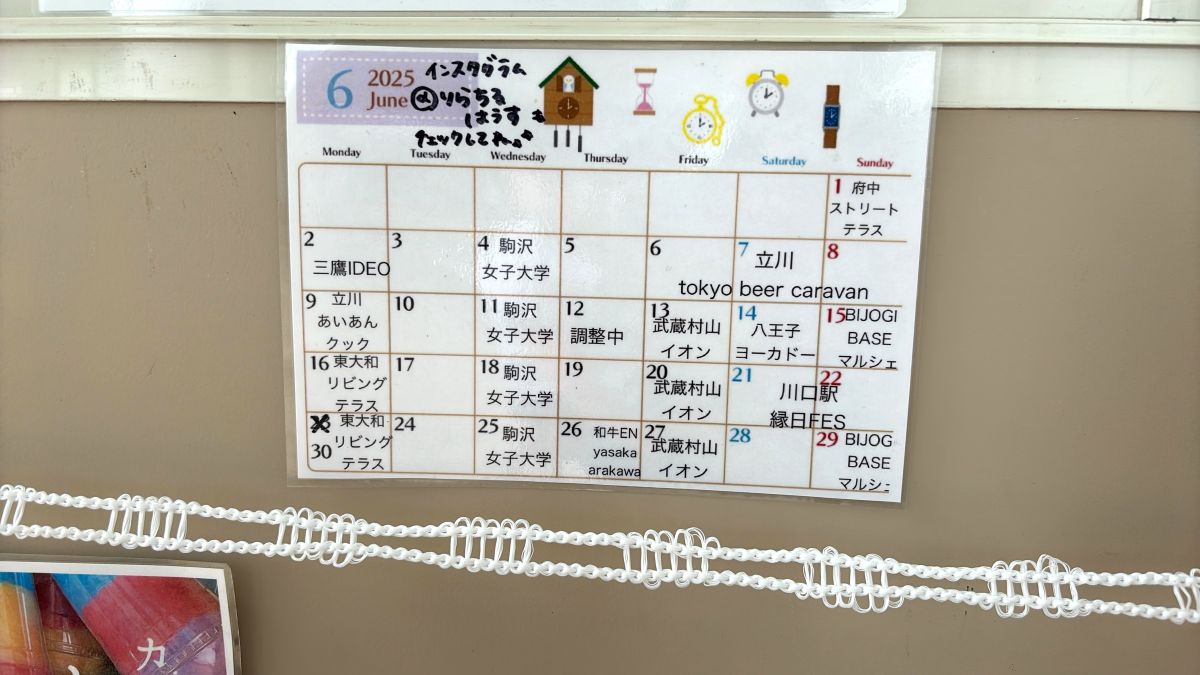 6 2025
June
インスタグラム
@りらちる
はうす も
チェックしてね。
Monday Tuesday Wednesday Thursday Friday Saturday Sunday
1 府中
ストリート
テラス
2
三鷹IDEO
3
4 駒沢
女子大学
5
6
7 立川
8
tokyo beer caravan
9 立川
あいあん
クック
10
11 駒沢
女子大学
12
調整中
13
武蔵村山
イオン
14
八王子
ヨーカドー
15 BIJOGI
BASE
マルシェ
16 東大和
リビング
テラス
17
18 駒沢
女子大学
19
20
武蔵村山
イオン
21
22
川口駅
縁日FES
23 東大和
30 リビング
テラス
24
25 駒沢
女子大学
26 和牛EN
yasaka
arakawa
27
武蔵村山
イオン
28
29 BIJOG
BASE
マルシ
カ